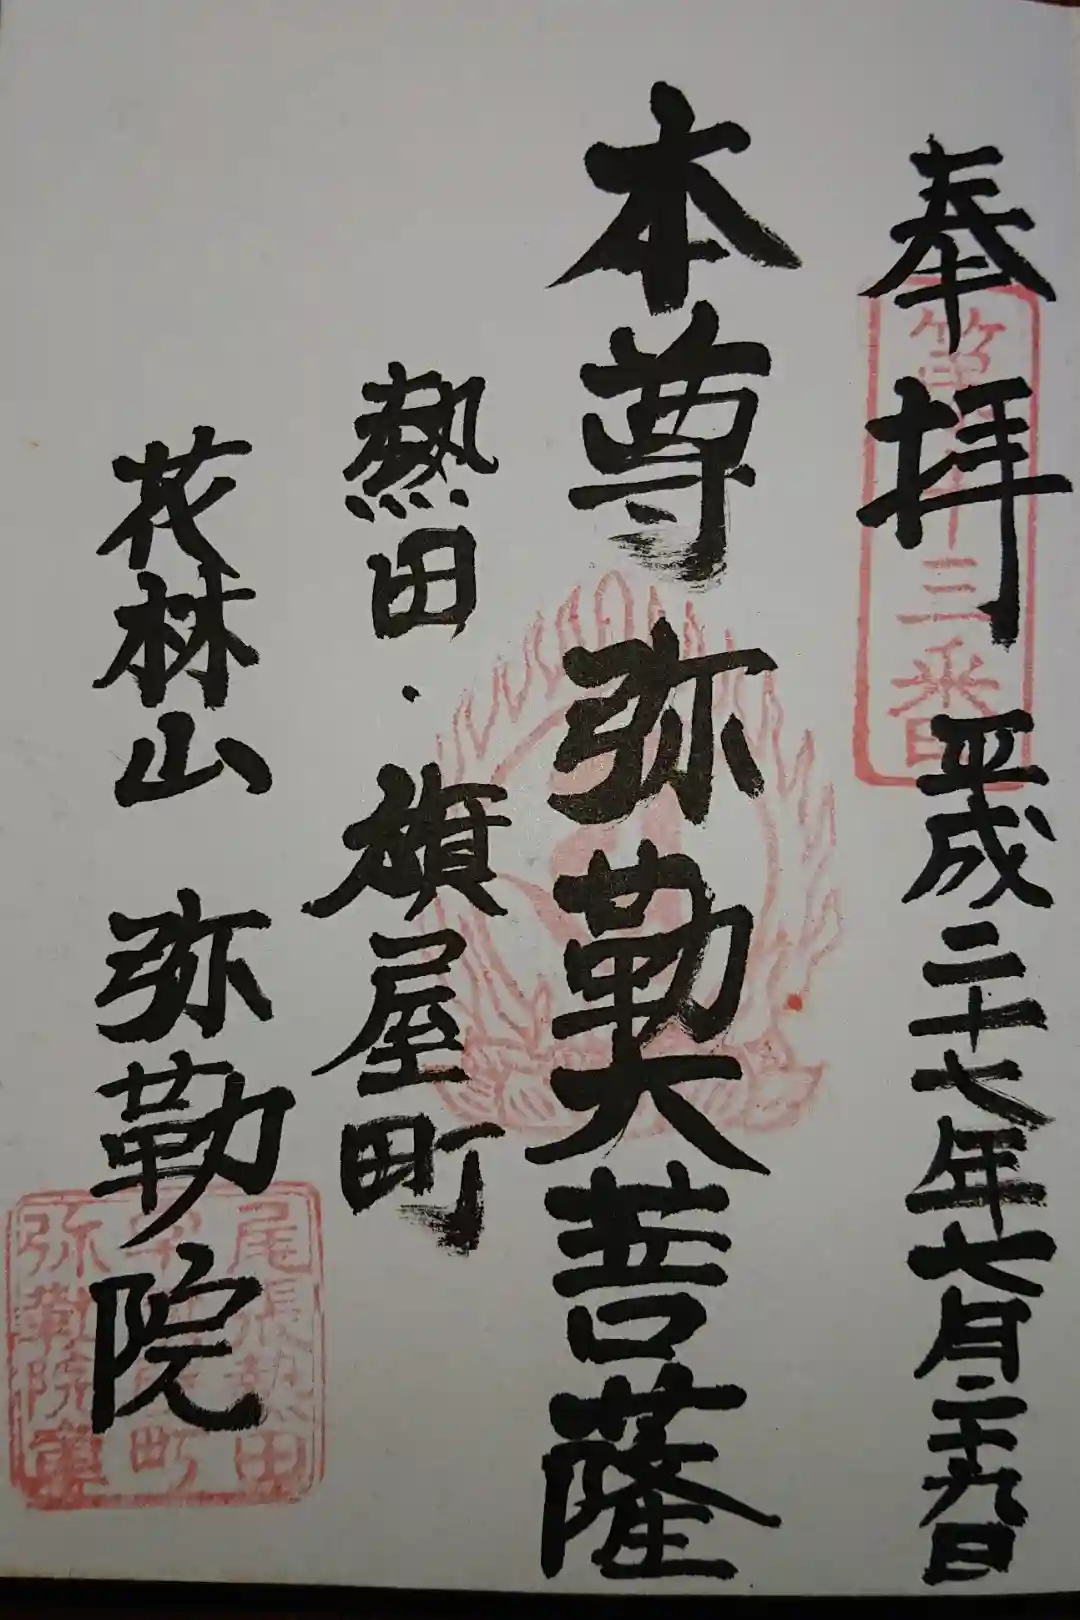 奉拝 平成二十七年七月二十九日
本尊 弥勒大菩薩
熱田・旗屋町
花林山 弥勒院
三番
尾張熱田
町
弥勒院章